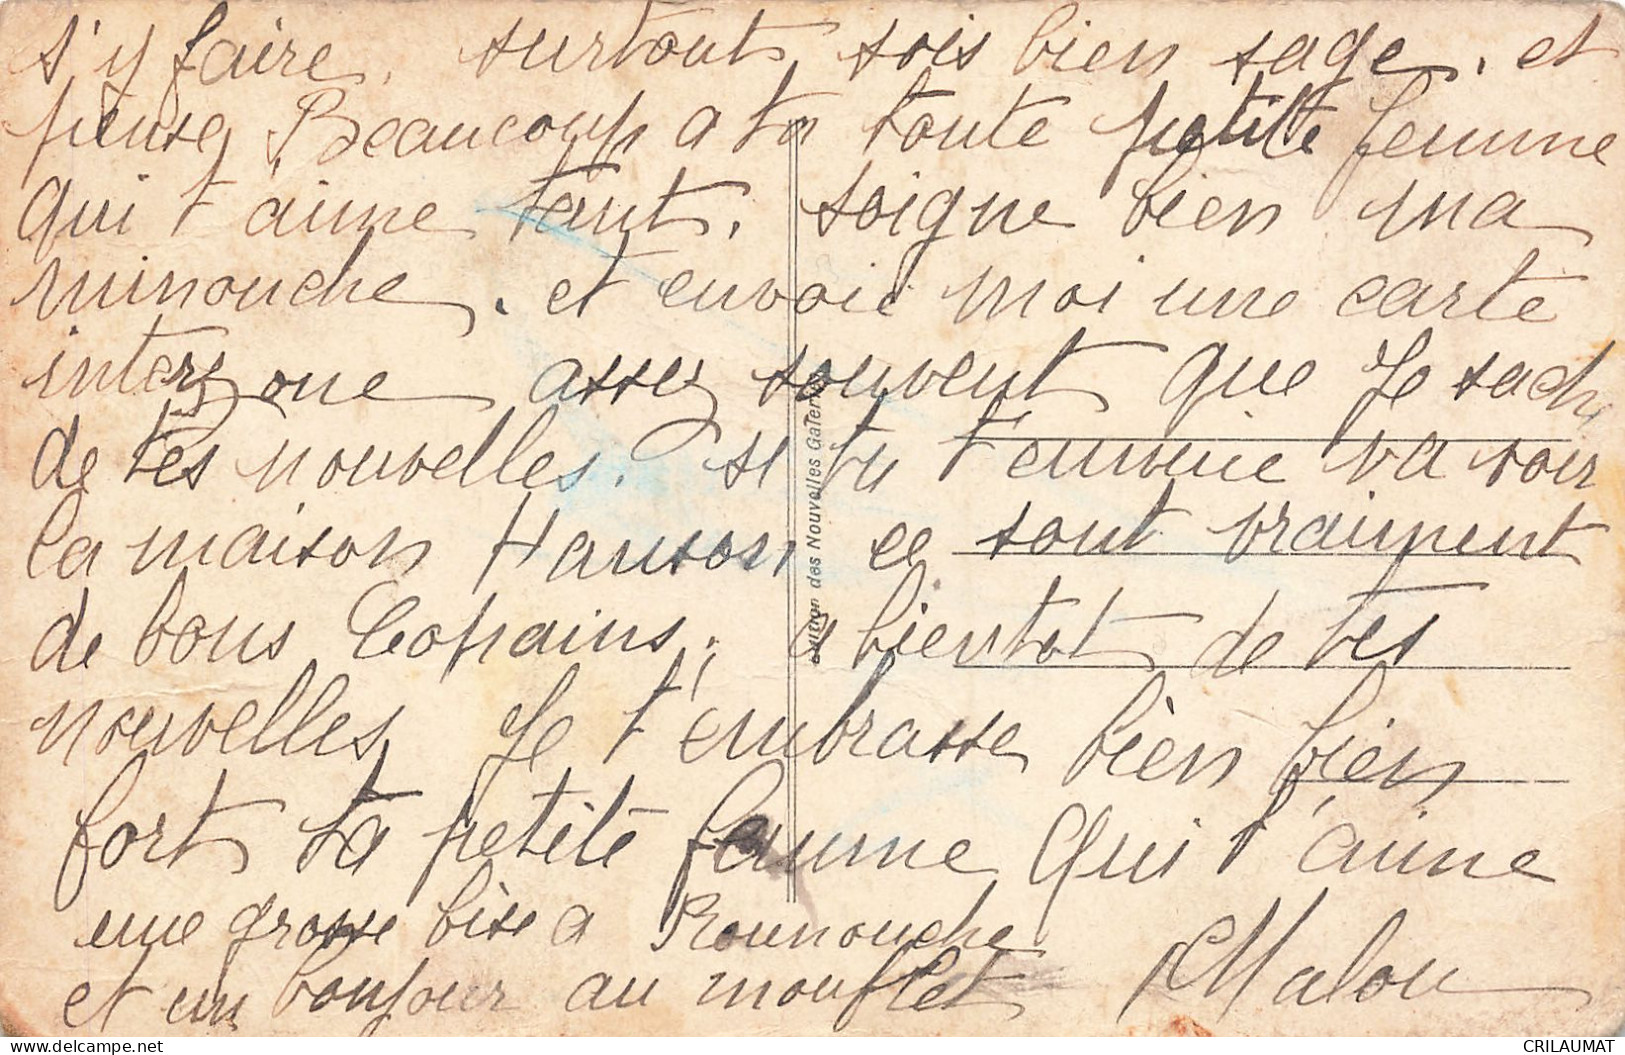 s'y faire, surtout sois bien sage. et
pense Beaucoup a ta toute petite femme
qui t'aime tant. soigne bien ma
minouche. et envoie moi une carte
interzone assez souvent que Je sache
de tes nouvelles. si tu t'ennuie va voir
la maison Hanson ce sont vraiment
de bons Copains, a bientot de tes
nouvelles, Je t'embrasse bien bien
fort ta petite femme Qui t'aime
une grosse bise a Rounouche
et un bonjour au mouflet Malou
des Nouvelles Galeries
CRILAUMAT
delcampe.net